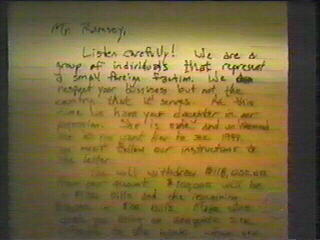 Mr. Ramsey,
Listen carefully! We are a
group of individuals that represent
a small foreign faction. We do
respect your bussiness but not the
country that it serves. At this
time we have your daughter in our
posession. She is safe and unharmed
and if you want her to see 1997,
you must follow our instructions to
the letter.
You will withdraw $118,000.00
from your account. $100,000 will be
in $100 bills and the remaining
in $20 bills. Make sure
that you bring an adequate size
to the bank. When you